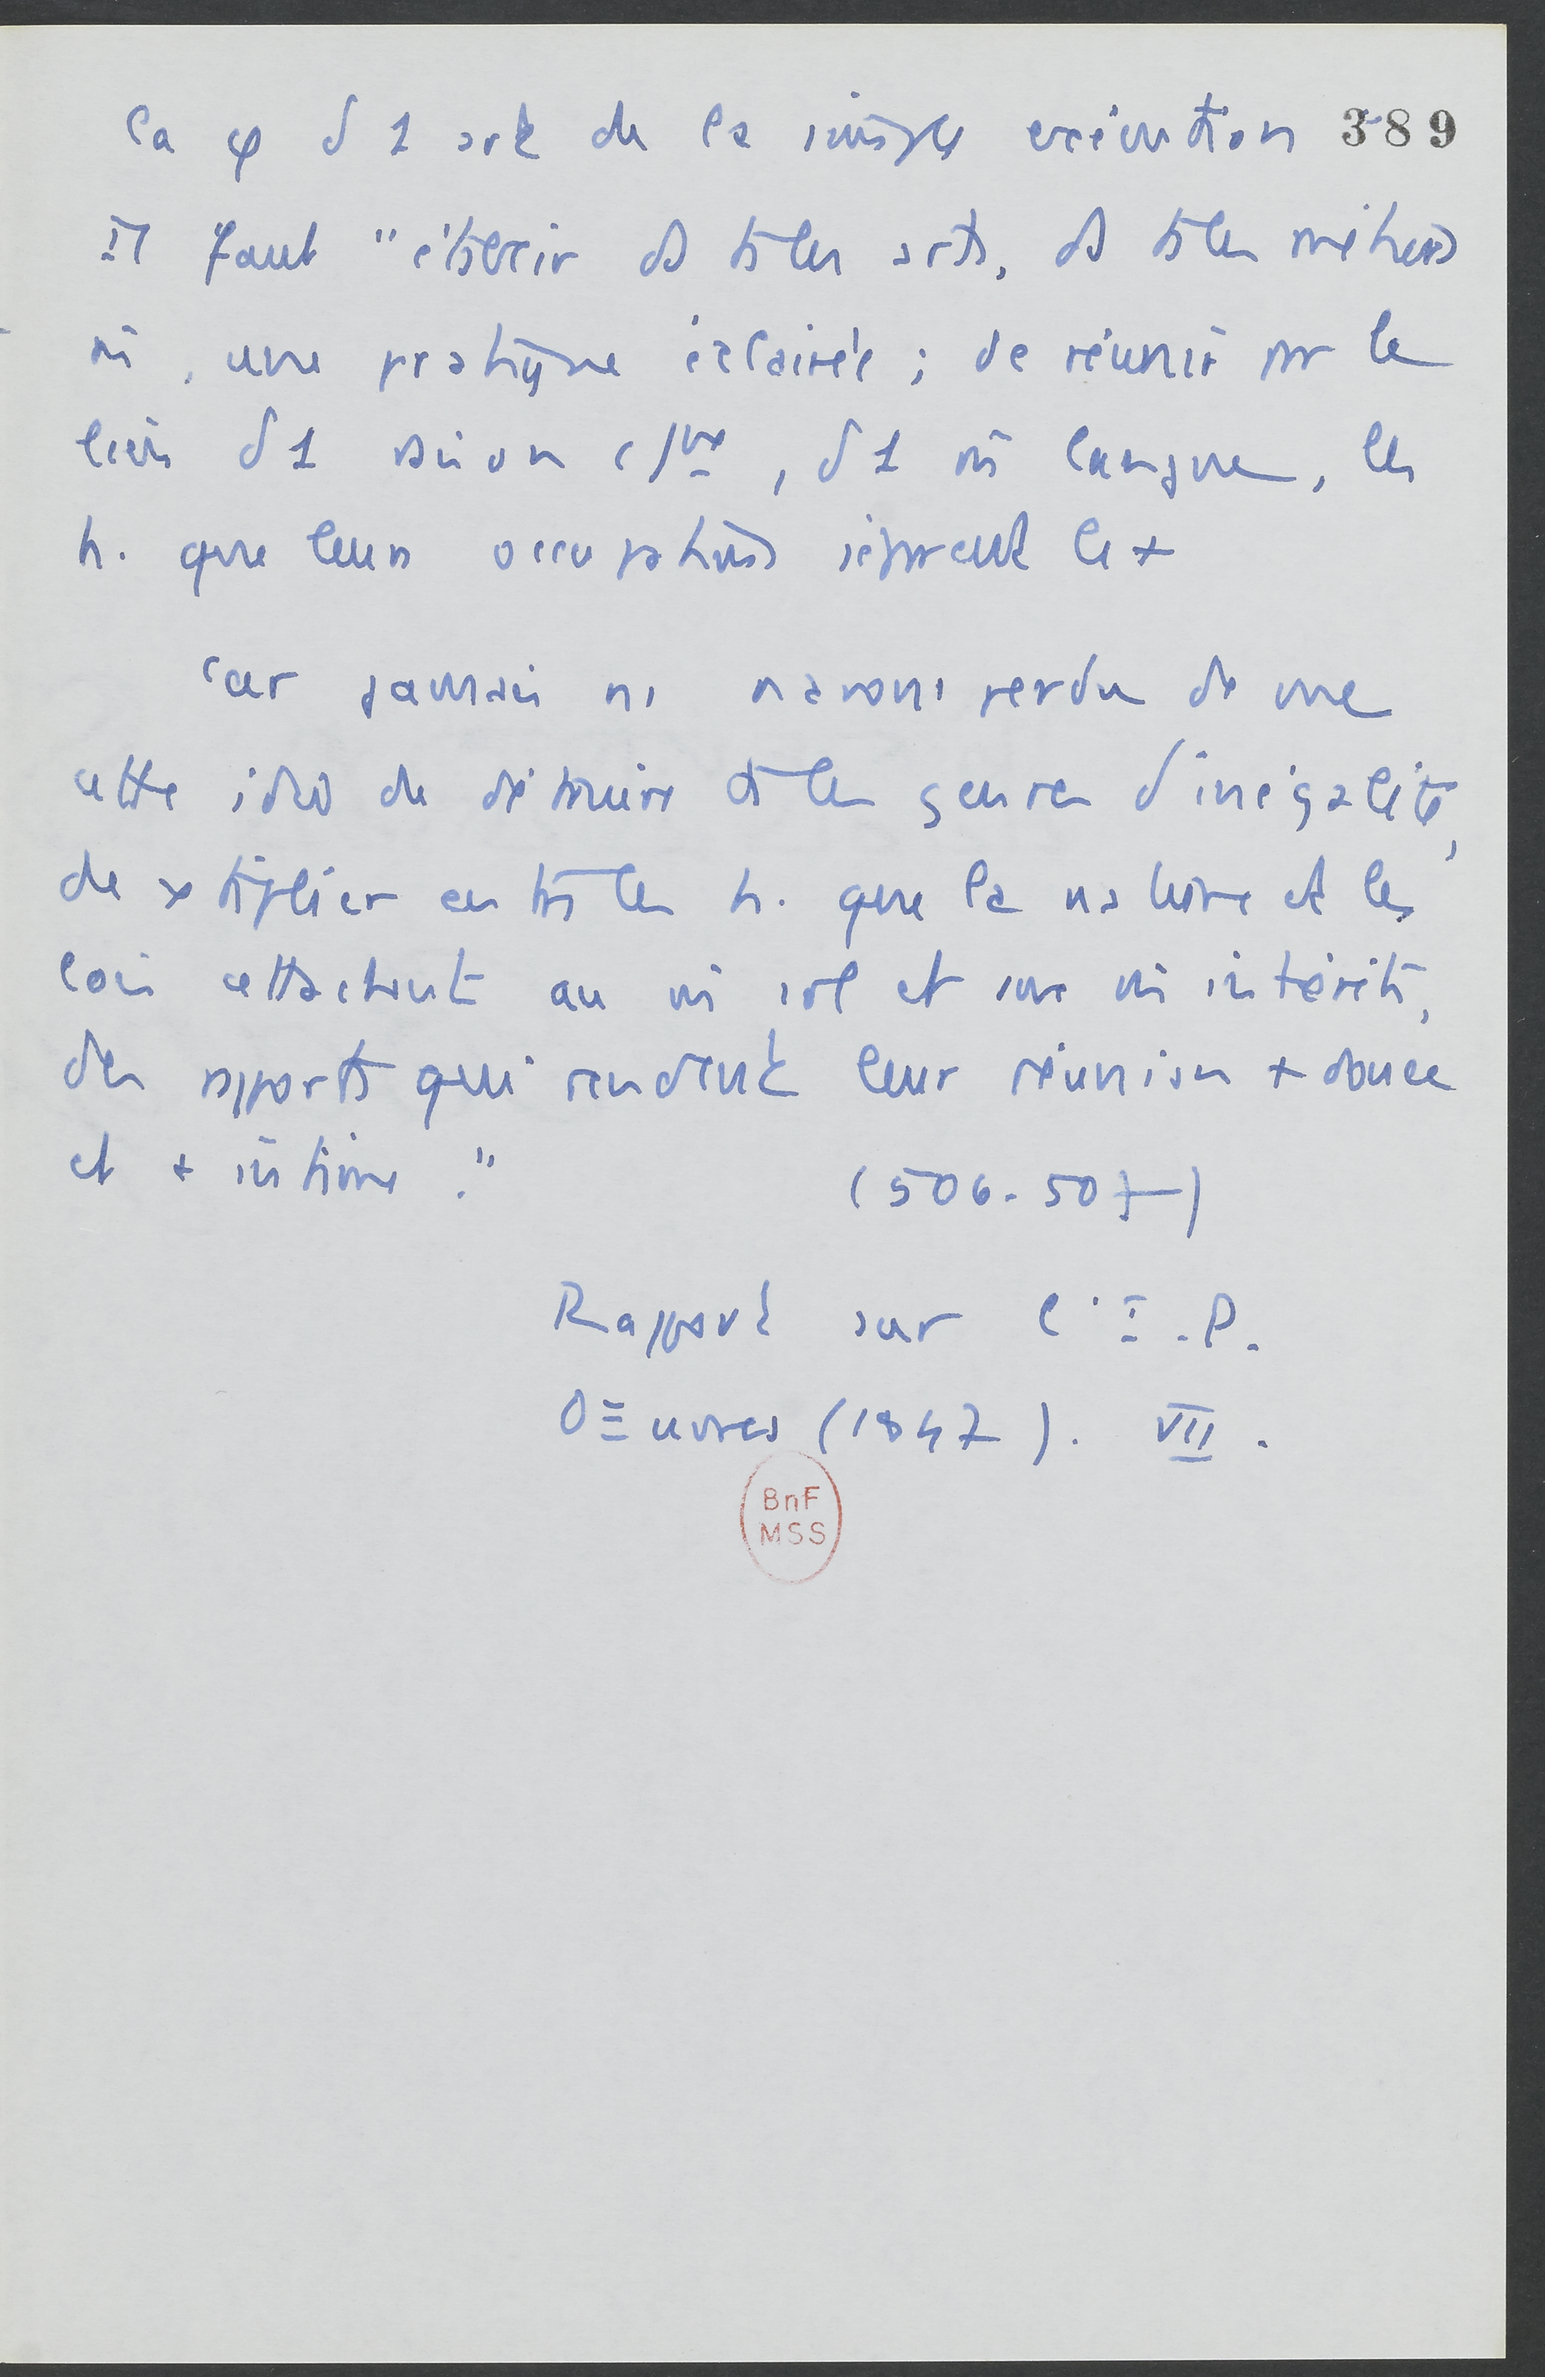 la φ d 1 art de la simple exécution 389
Il faut "établir ds ts les arts, ds ts les métiers
m̄, une pratique éclairée ; de réunir par le
lien d 1 raison c/ne, d 1 m̄ langue, les
h. que leurs occupations séparent le +
Car jamais ns n avons perdu de vue
cette idée de détruire ts les genres d'inégalité,
de × tiplier en ts les h. que la nature et les
lois attachent au m̄ sol et aux m̄ intérêts,
des rapports qui rendent leur réunion + douce
et + intime."
(506-507)
Rapport sur l'I.P.
OEuvres (1847). VII.
BnF
MSS